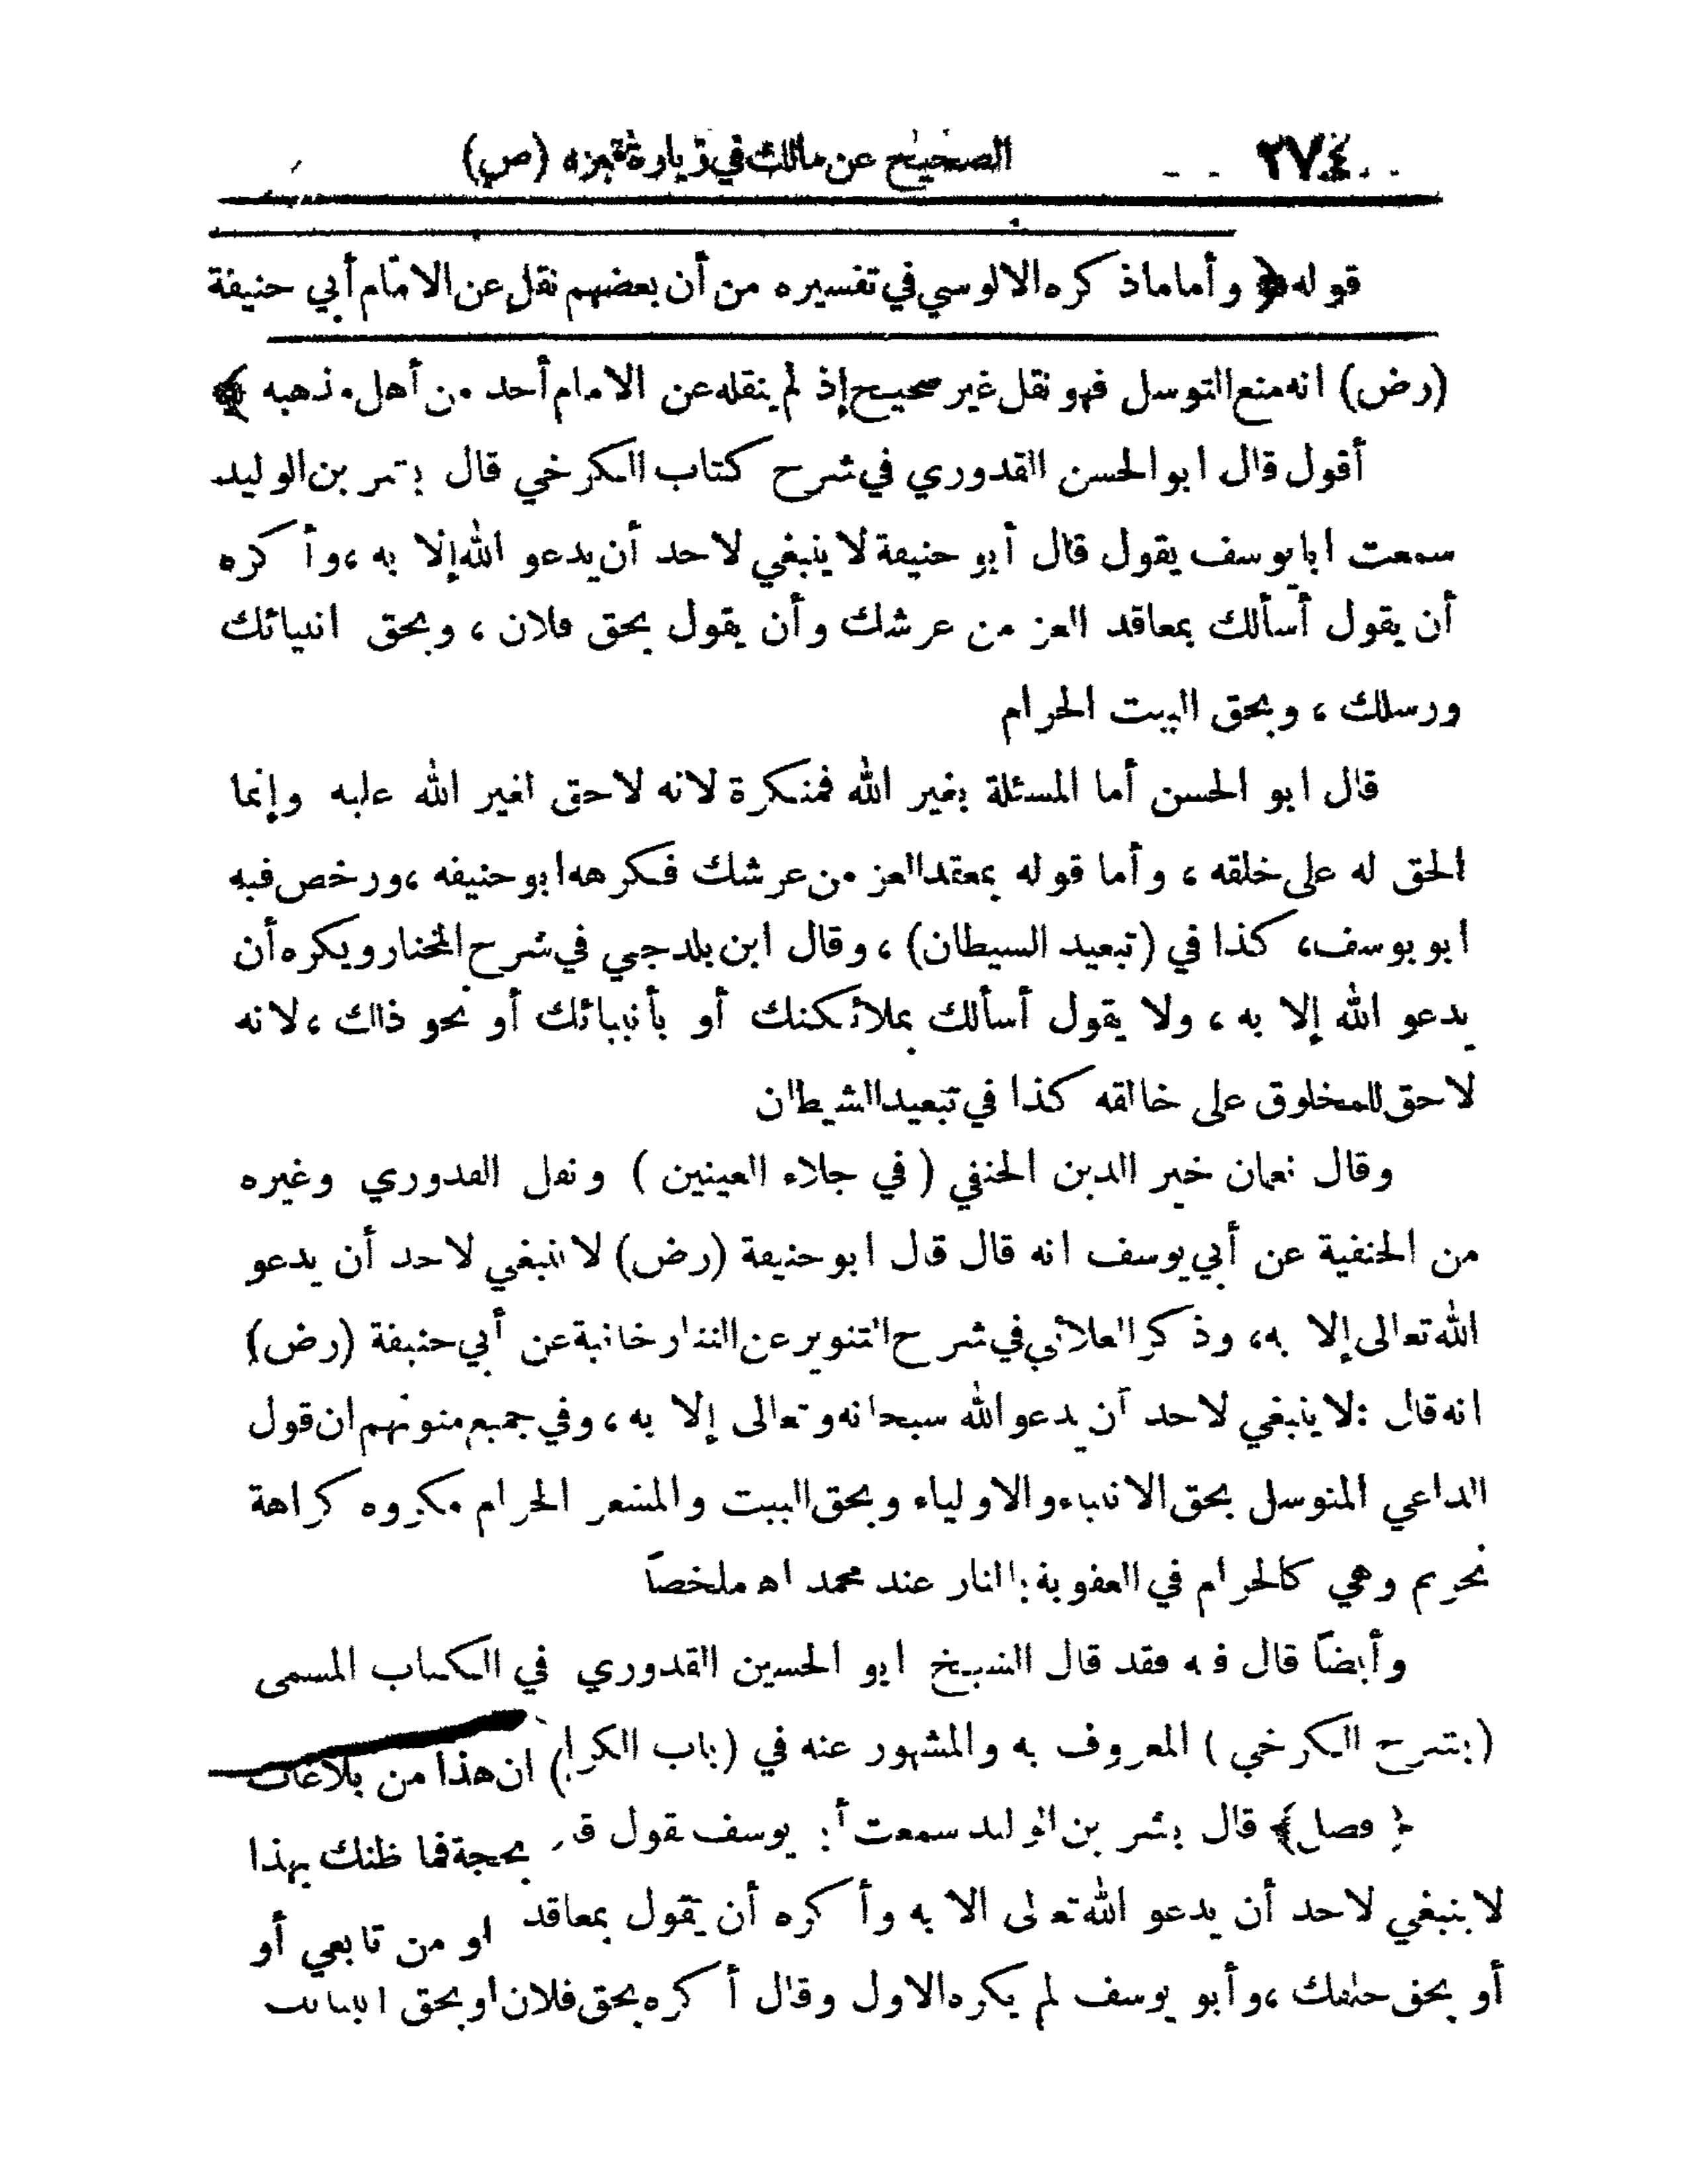 ٢٧٤ الصحيح عن مالك في زيارة قبره (ص)
قوله ﴿ وأما ماذكره الالوسي في تفسيره من أن بعضهم نقل عن الامام أبي حنيفة
(رض) انه منع التوسل فهو نقل غير صحيح إذ لم ينقله عن الامام أحد من أهل مذهبه ﴾
أقول قال ابو الحسن القدوري في شرح كتاب الكرخي قال بشر بن الوليد
سمعت ابا يوسف يقول قال أبو حنيفة لا ينبغي لاحد أن يدعو الله إلا به ، وأكره
أن يقول أسألك بمعاقد العز من عرشك وأن يقول بحق فلان ، وبحق انبيائك
ورسلك ، وبحق البيت الحرام
قال ابو الحسن أما المسئلة بغير الله فمنكرة لانه لاحق لغير الله عليه وإنما
الحق له على خلقه ، وأما قوله بمعقد العز من عرشك فكرهه ابو حنيفه ، ورخص فيه
ابو يوسف، كذا في (تبعيد الشيطان) ، وقال ابن بلدجي في شرح المختار ويكره أن
يدعو الله إلا به ، ولا يقول أسألك بملائكتك أو بأنبيائك أو نحو ذلك ، لانه
لاحق للمخلوق على خالقه كذا في تبعيد الشيطان
وقال نعمان خير الدين الحنفي ( في جلاء العينين ) ونقل القدوري وغيره
من الحنفية عن أبي يوسف انه قال قال ابو حنيفة (رض) لا ينبغي لاحد أن يدعو
الله تعالى إلا به، وذكر العلائي في شرح التنوير عن التتارخانية عن أبي حنيفة (رض)
انه قال : لا ينبغي لاحد أن يدعو الله سبحانه وتعالى إلا به ، وفي جميع متونهم ان قول
الداعي المتوسل بحق الانبياء والاولياء وبحق البيت والمشعر الحرام مكروه كراهة
تحريم وهي كالحرام في العقوبة بالنار عند محمد اه ملخصاً
وأيضاً قال فيه فقد قال الشيخ ابو الحسين القدوري في الكتاب المسمى
(بشرح الكرخي ) المعروف به والمشهور عنه في (باب الكرا) ان هذا من بلاغات
﴿ فصل ﴾ قال بشر بن الوليد سمعت أبا يوسف يقول بحجة فما ظنك بهذا
لا ينبغي لاحد أن يدعو الله تعالى الا به وأكره أن تقول بمعاقد او من تابعي أو
أو بحق خلقك ، وأبو يوسف لم يكره الاول وقال أكره بحق فلان او بحق انبيائك